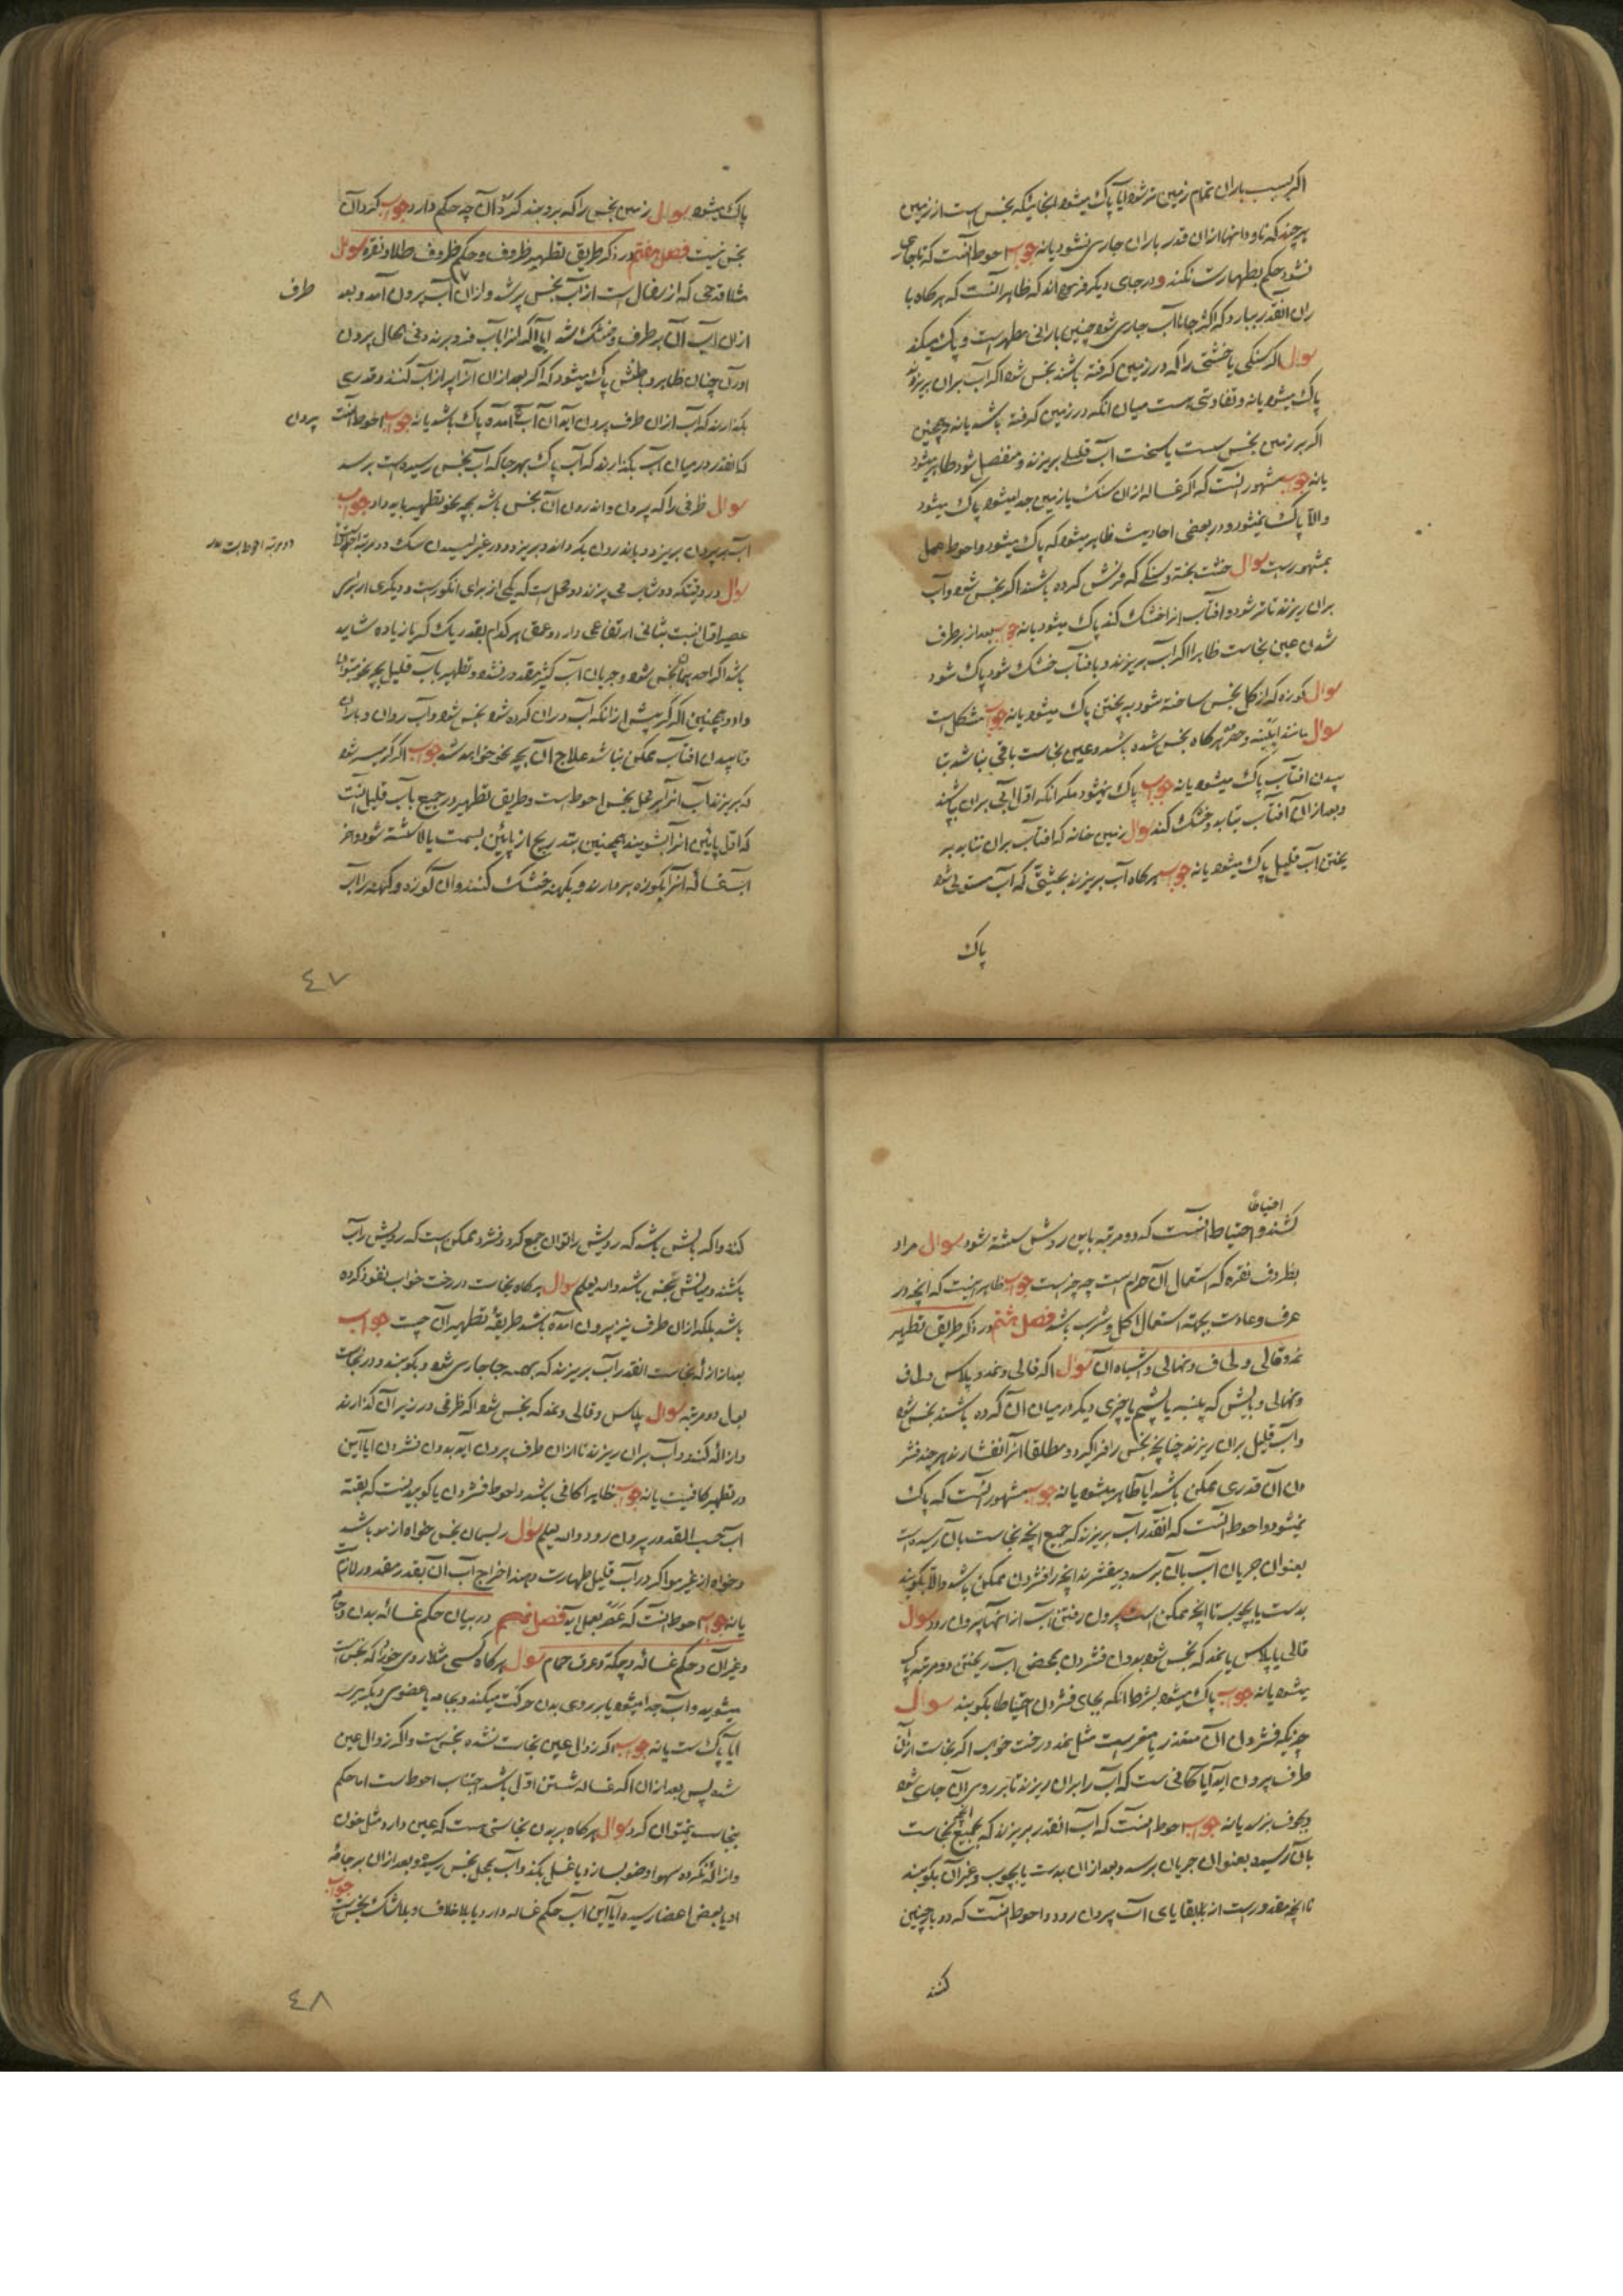 اکر بسبب باران تمام زمین تر شود ایا پاک میشود انجائیکه نجس است از زمین
هر چند که ناودانها ازان قدر باران جاری نشود یا نه جواب احوط انست که تا جاری
نشود حکم بطهارت نکنند و در جای دیگر فرموده‌اند که ظاهر انست که هرگاه با
ران انقدر ببارد که اکثر جاها آب جاری شود چنین بارانی مطهر است و پاک میکند
سوال اکر سنکی یا خشتی را که در زمین کرفته باشند نجس شود اکر آب بران بریزند
پاک میشود یا نه و تفاوتی هست میان انکه در زمین کرفته باشد یا نه و همچنین
اکر بر زمین نجس سست یا سخت آب قلیلی بریزند و منفصل شود طاهر میشود
یا نه جواب مشهور انست که اکر غساله ازان سنک یا زمین جدا میشود پاک میشود
والا پاک نمیشود و در بعضی احادیث ظاهر میشود که پاک میشود و احوط عمل
بمشهور است سوال خشت پخته و سنکی که فرش کرده باشند اکر نجس شود و آب
بران ریزند تا تر شود و افتاب انرا خشک کند پاک میشود یا نه جواب بعد از برطرف
شدن عین نجاست ظاهرا اکر آب بریزند و بافتاب خشک شود پاک شود
سوال کوزه که از کل نجس ساخته شود به پختن پاک میشود یا نه جواب مشکل است
سوال مانند ابکینه و خم هرکاه نجس شده باشد و عین نجاست باقی نباشد بتا
بیدن افتاب پاک میشود یا نه جواب پاک نمیشود مکر انکه اول آبی بران بپاشند
و بعد ازان آفتاب بتابد و خشک کند سوال زمین خانه که افتاب بران نتابد بر
یختن آب قلیل پاک میشود یا نه جواب هرکاه آب بریزند بحیثیتی که آب مستولی شود
پاک
پاک میشود سوال زمین نجس را که بروبند کرد آن چه حکم دارد جواب کرد آن
نجس نیست فصل هفتم در ذکر طریق تطهیر ظروف و حکم ظروف طلا و نقره سوال
مثلا قدحی که از سفال است از آب نجس پر شد و ازان آب پرون آمد و بعد
طرف
ازان آب آن برطرف و خشک شد ایا اکر انرا باب فرو برند و فی الحال پرون
اورن چنان ظاهر و باطنش پاک میشود که اکر بعد ازان انرا پر از آب کنند و قدری
بکذارند که آب ازان طرف پرون آید آن آب آمده پاک باشد یا نه جواب احوط انست
پرون
که انقدر در میان آب بکذارند که آب پاک بهر جا که آب نجس رسیده است برسد
سوال ظرفی را که پرون و اندرون آن نجس باشد بچه نحو تطهیر باید داد جواب
آب بر پرون بریزد و باندرون بکرداند و بریزد و در غیر لیسیدن سک دو مرتبه احوط
سوال در وقتیکه دوشاب می پزند دو محل است که یکی از برای انکور است و دیکری از برای
عصیر اول نسبت بثانی ارتفاعی دارد و عمق هر کدام بقدر یک کر یا زیاده شاید
باشد اکر احدیهما نجس شود و جریان آب کثیر مقدور نشود تطهیر باب قلیل بچه نحو میتوان
داد و همچنین اکر کر پیش از انکه آب دران کرده شود نجس شود و آب روان و باران
و تابیدن افتاب ممکن نباشد علاج آن بچه نحو خواهد شد جواب اکر کر بسر شود
که بریزند آب انرا بر محل نجس احوط است و طریق تطهیر در جمیع باب قلیل انست
که اول پائین انرا بشویند همچنین بتدریج از پائین بسمت بالا شسته شود و اخر
آب غساله انرا بکوزه بردارند و بکهنه خشک کنند و ان کوزه و کهنه را آب
٤٧
احتیاطا
کشند و احتیاط انست که دو مرتبه باین روش شسته شود سوال مراد
بظروف نقره که استعمال آن حرام است چه چیز است جواب ظاهر اینست که انچه در
عرف و عادت بجهته استعمال اکل و شرب باشد فصل هشتم در ذکر طریق تطهیر
نمد و قالی و لحاف و نهالی و اشباه آن سوال اکر قالی و نمد و پلاس و لحاف
و نهالی و بالش که پنبه یا پشم یا چیزی دیکر در میان آن کرده باشند نجس شود
و آب قلیل بران ریزند چنانچه نجس را فرا کیرد و مطلقا انرا نفشارند هر چند فشر
دن آن قدری ممکن باشد ایا طاهر میشود یا نه جواب مشهور انست که پاک
نمیشود و احوط انست که انقدر آب بریزند که جمیع انچه نجاست بان رسیده است
بعنوان جریان آب بان برسد و بیفشرند انچه را فشردن ممکن باشد و الا بکوبند
بدست یا بچوب تا انچه ممکن است پرون رفتن آب از انها پرون رود سوال
قالی یا پلاس یا نمد که نجس شود بدون فشردن بمحض آب ریختن دو مرتبه پاک
میشود یا نه جواب پاک میشود بشرط انکه بجای فشردن احتیاطا بکوبند سوال
چیزیکه فشردن آن متعذر یا متعسر است مثل نمد و رخت خواب اکر نجاست ازان
طرف پرون اید آیا کافی است که آب را بران ریزند تا بر روی آن جاری شود
و بجوف نرسد یا نه جواب احوط انست که آب انقدر بریزند که بجمیع انچه نجاست
بان رسیده بعنوان جریان برسد و بعد ازان بدست یا بچوب و غیر آن بکوبند
تا انچه مقدور است از بقایای آب پرون رود و احوط انست که دو بار چنین
کنند
کنند و اکر بالش باشد که رویش را توان جمع کرد و فشرد ممکن است که رویش را آب
باشند و میانش نجس باشد والله یعلم سوال هرکاه نجاست در رخت خواب نفوذ کرده
باشد بلکه ازان طرف نیز پرون آمده باشد طریقهٔ تطهیر آن چیست جواب
بعد از ازالهٔ نجاست انقدر آب بریزند که بهمه جا جاری شود و بکوبند و در نجاست
بول دو مرتبه سوال پلاس و قالی و نمد که نجس شود اکر ظرفی در زیر آن کذارند
و ازاله کنند و آب بران ریزند تا ازان طرف پرون آید بدون فشردن ایا این
در تطهیر کافیست یا نه جواب ظاهرا کافی باشد و احوط افشردن یا کوبیدنست که بقیه
آب حسب المقدور پرون رود والله یعلم سوال ریسمان نجس خواه از مو باشد
و خواه از غیر مو اکر در آب قلیل طهارت دهند اخراج آب آن بقدر مقدور لازم است
یا نه جواب احوط انست که عصر بعمل آید فصل نهم در بیان حکم غساله بدن و جامه
و غیر آن و حکم غساله و چکه و عرق حمام سوال هرکاه کسی مثلا روی خود را که نجس است
میشوید و آب جدا میشود یا بر روی بدن حرکت میکند و بجامه یا عضوی دیکر میرسد
ایا پاک است یا نه جواب اکر زوال عین نجاست نشده نجس است و اکر زوال عین
شده پس بعد ازان اکر غساله شستن اول باشد اجتناب احوط است اما حکم
بنجاست نمیتوان کرد سوال هرکاه بربدن نجاستی هست که عین دارد مثل خون
و ازاله نکرده سهوا وضو بسازد یا غسل بکند و آب بمحل نجس رسیده و بعد ازان بر جامهٔ
او یا بعض اعضا رسیده ایا این آب حکم غساله دارد یا بلا خلاف و بلا شک نجس است جواب
٤٨